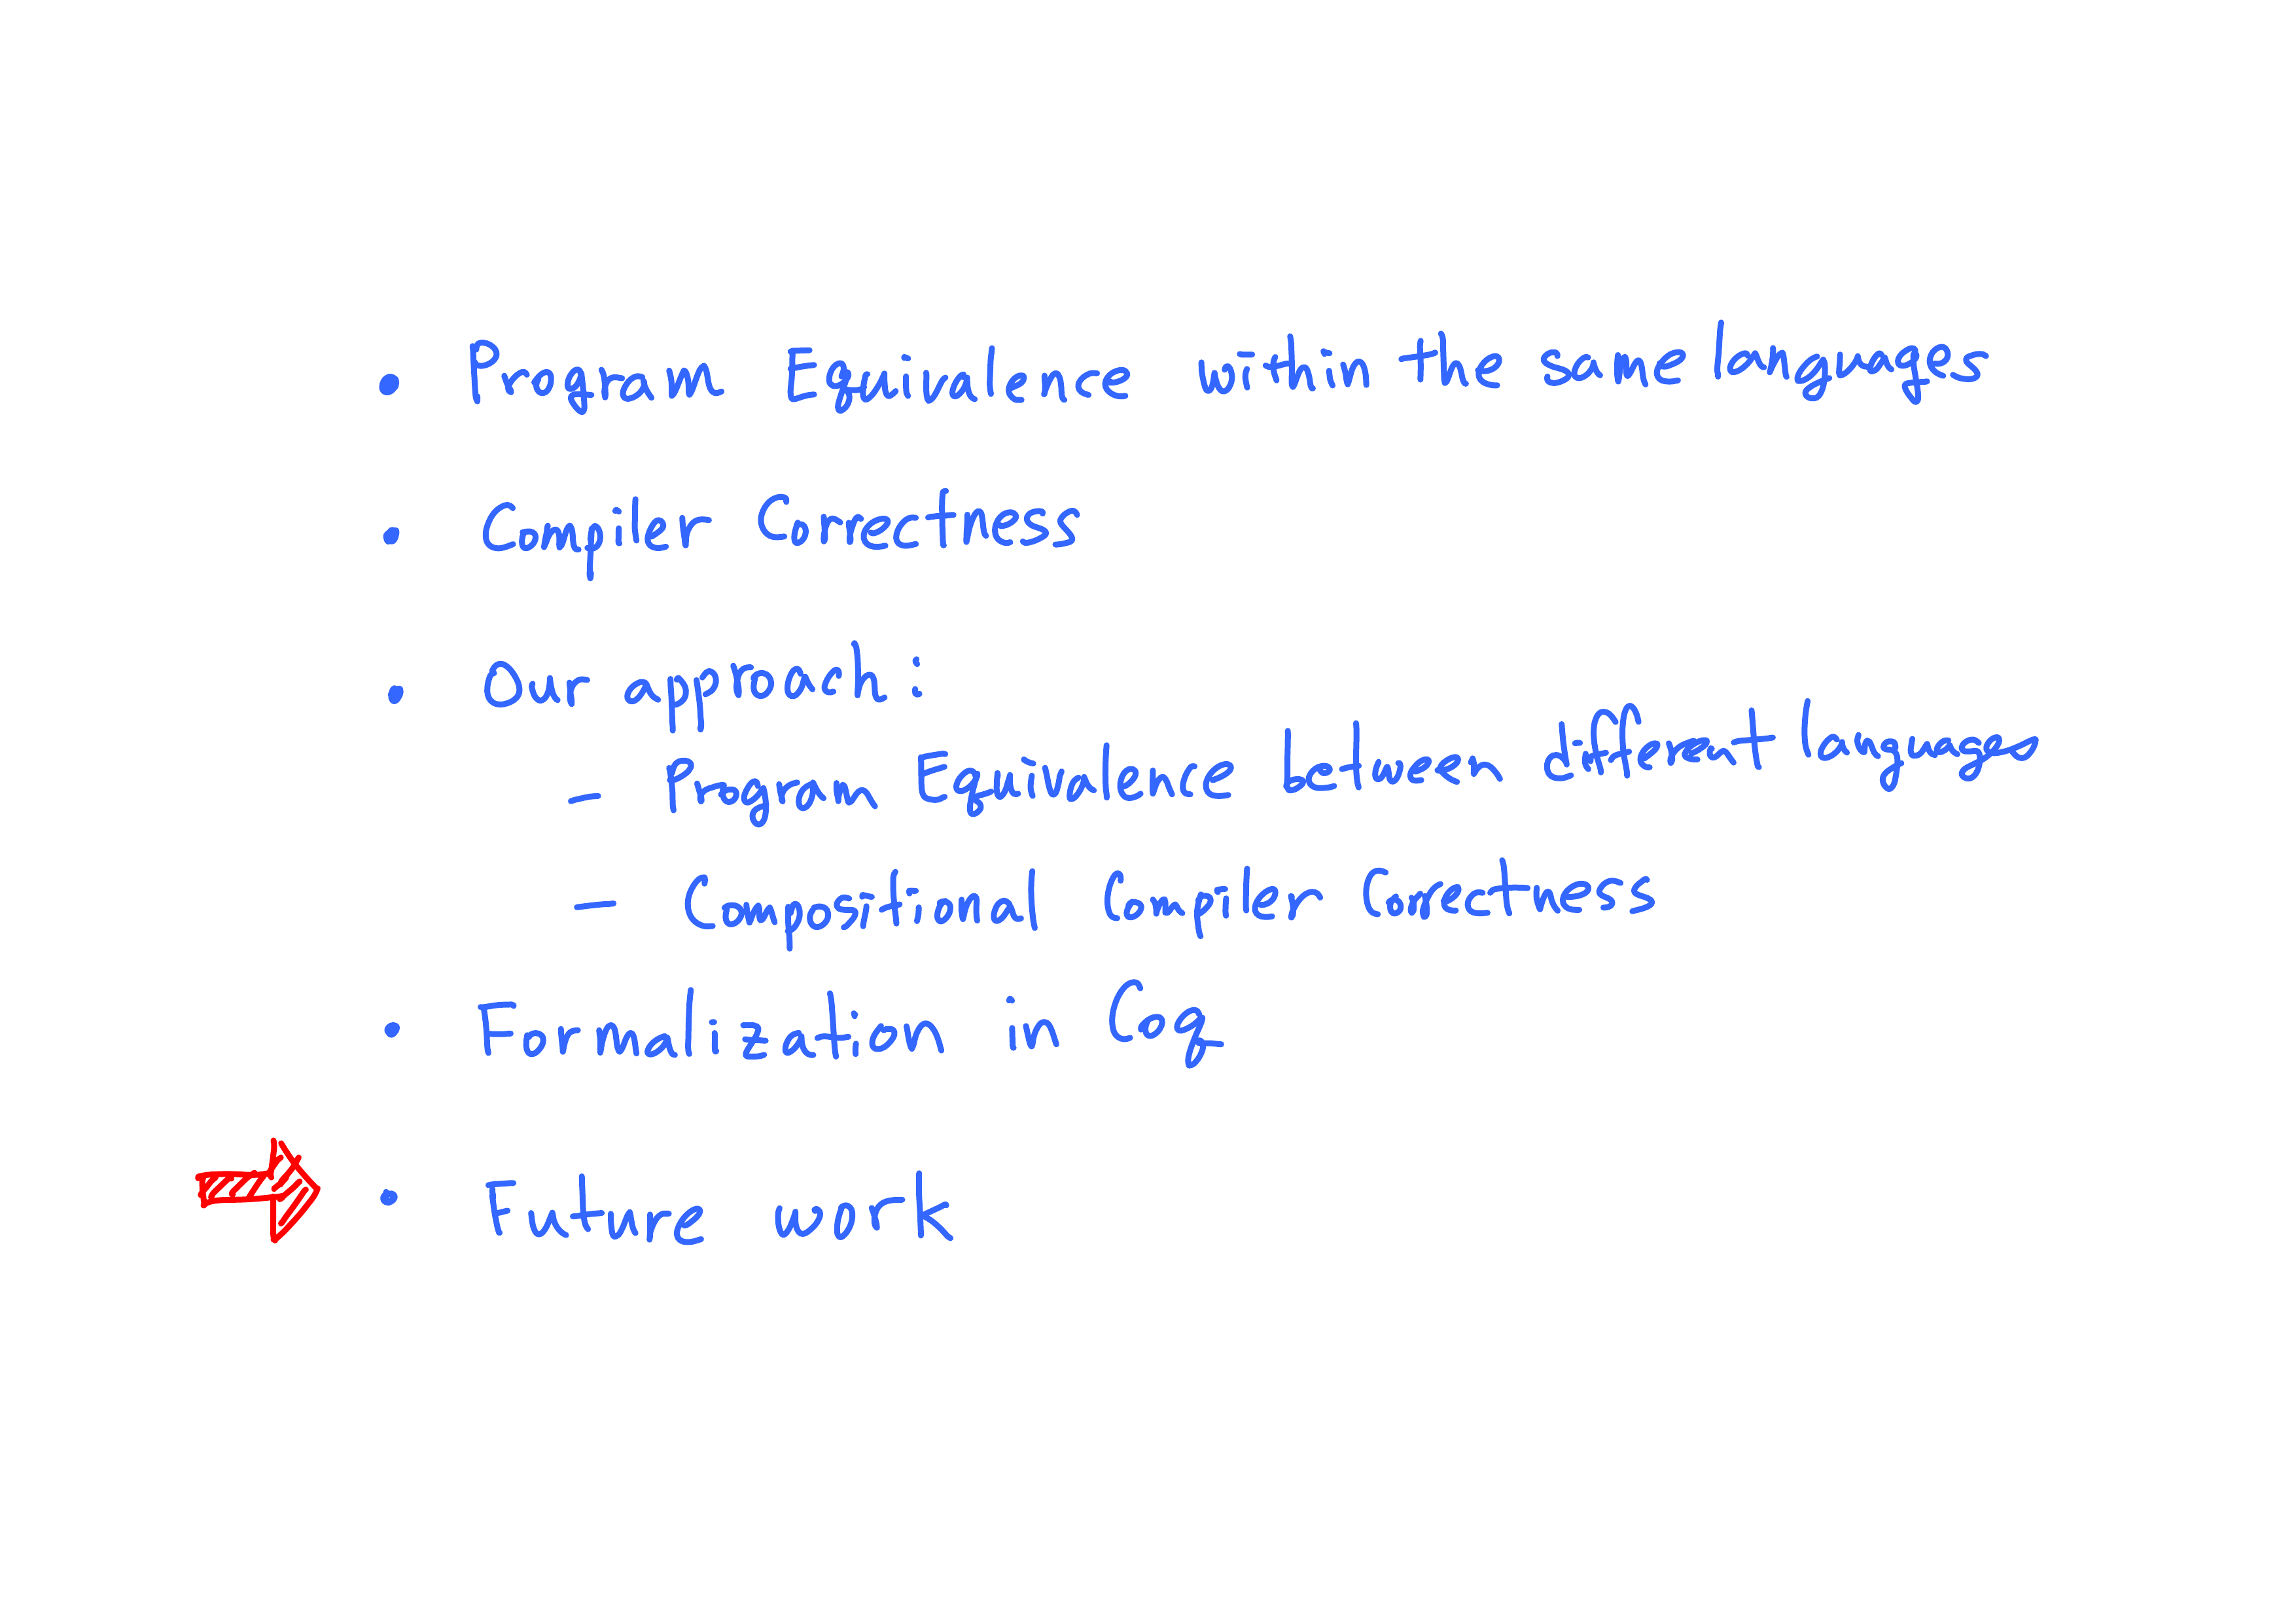 • Program Equivalence within the same languages
• Compiler Correctness
• Our approach :
– Program Equivalence between different languages
– Compositional Compiler Correctness
• Formalization in Coq
• Future work